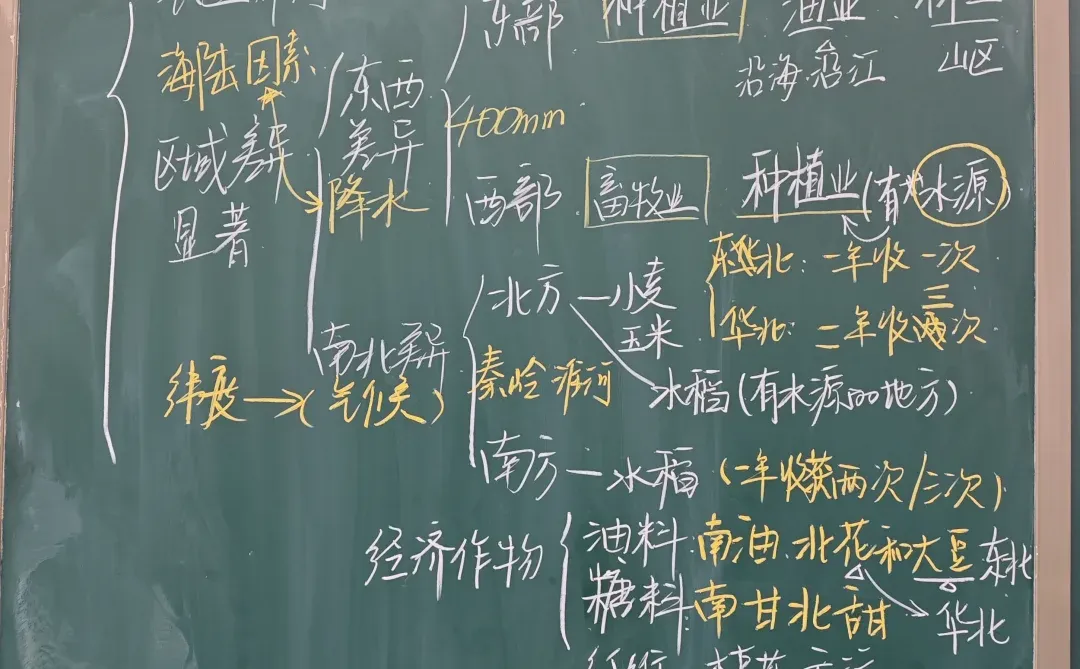 东部 种植业 渔业
沿海 沿江 山区
海陆因素
区域差异
显著
东西
差异
降水
400mm
西部 畜牧业 种植业(有水源)
北方 小麦
玉米
东北: 一年收一次
华北: 二年收三次
南北差异
纬度→(气候)
秦岭淮河
水稻(有水源的地方)
南方 — 水稻 (一年收获两次/三次)
经济作物
油料 南油 北花和大豆 东北
华北
糖料 南甘北甜